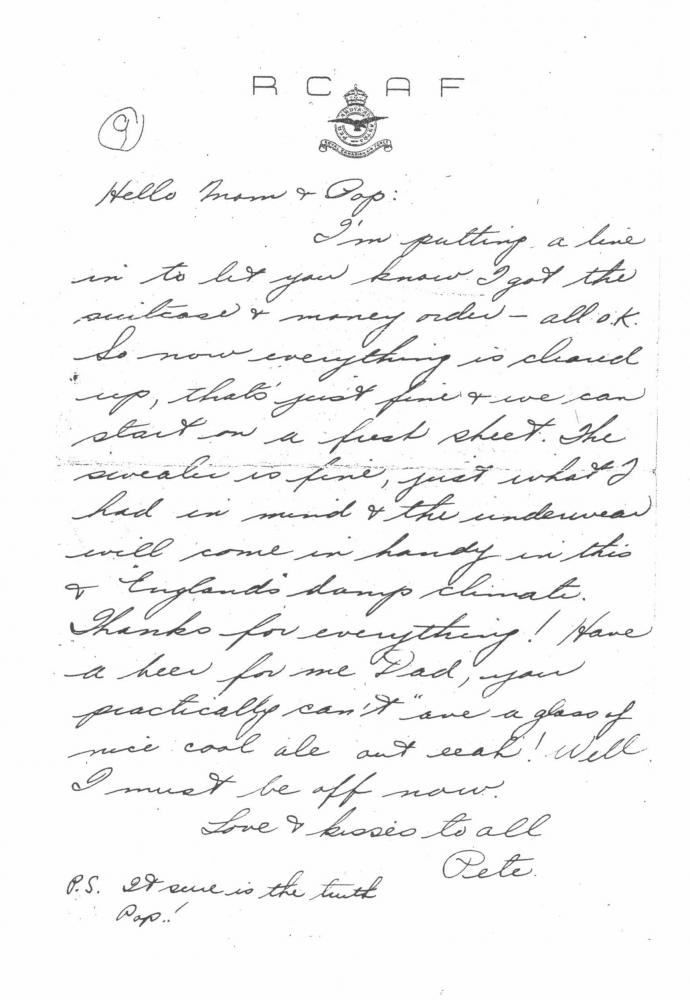 R C A F
PER ARDUA AD ASTRA
ROYAL CANADIAN AIR FORCE
9
Hello Mom & Pop:
I'm putting a line
in to let you know I got the
suitcase & money order – all o.K.
So now everything is cleared
up, thats' just fine & we can
start on a fresh sheet. The
sweater is fine, just what I
had in mind & the underwear
will come in handy in this
& England's damp climate.
Thanks for everything! Have
a beer for me Dad, you
practically can't "ave a glass of
nice cool ale out eeah! Well
I must be off now.
Love & kisses to all
Pete.
P.S. It sure is the truth
Pop..!